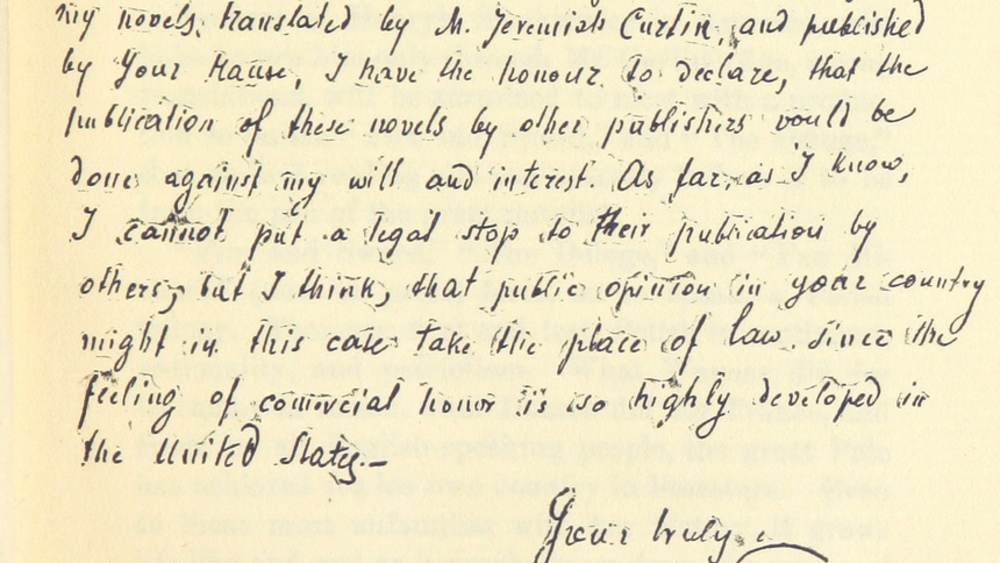 my novels, translated by M. Jeremiah Curtin, and published
by Your House, I have the honour to declare, that the
publication of these novels by other publishers would be
done against my will and interest. As far as I know,
I cannot put a legal stop to their publication by
others, but I think, that public opinion in your country
might in this case take the place of law. since the
feeling of commcial honor is so highly developed in
the United States.—
Yours truly